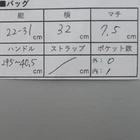 ■バッグ
縦 横 マチ
22-31cm 32cm 7.5cm
ハンドル ストラップ ポケット数
29.5~40.5cm cm 外: 0
内: 1